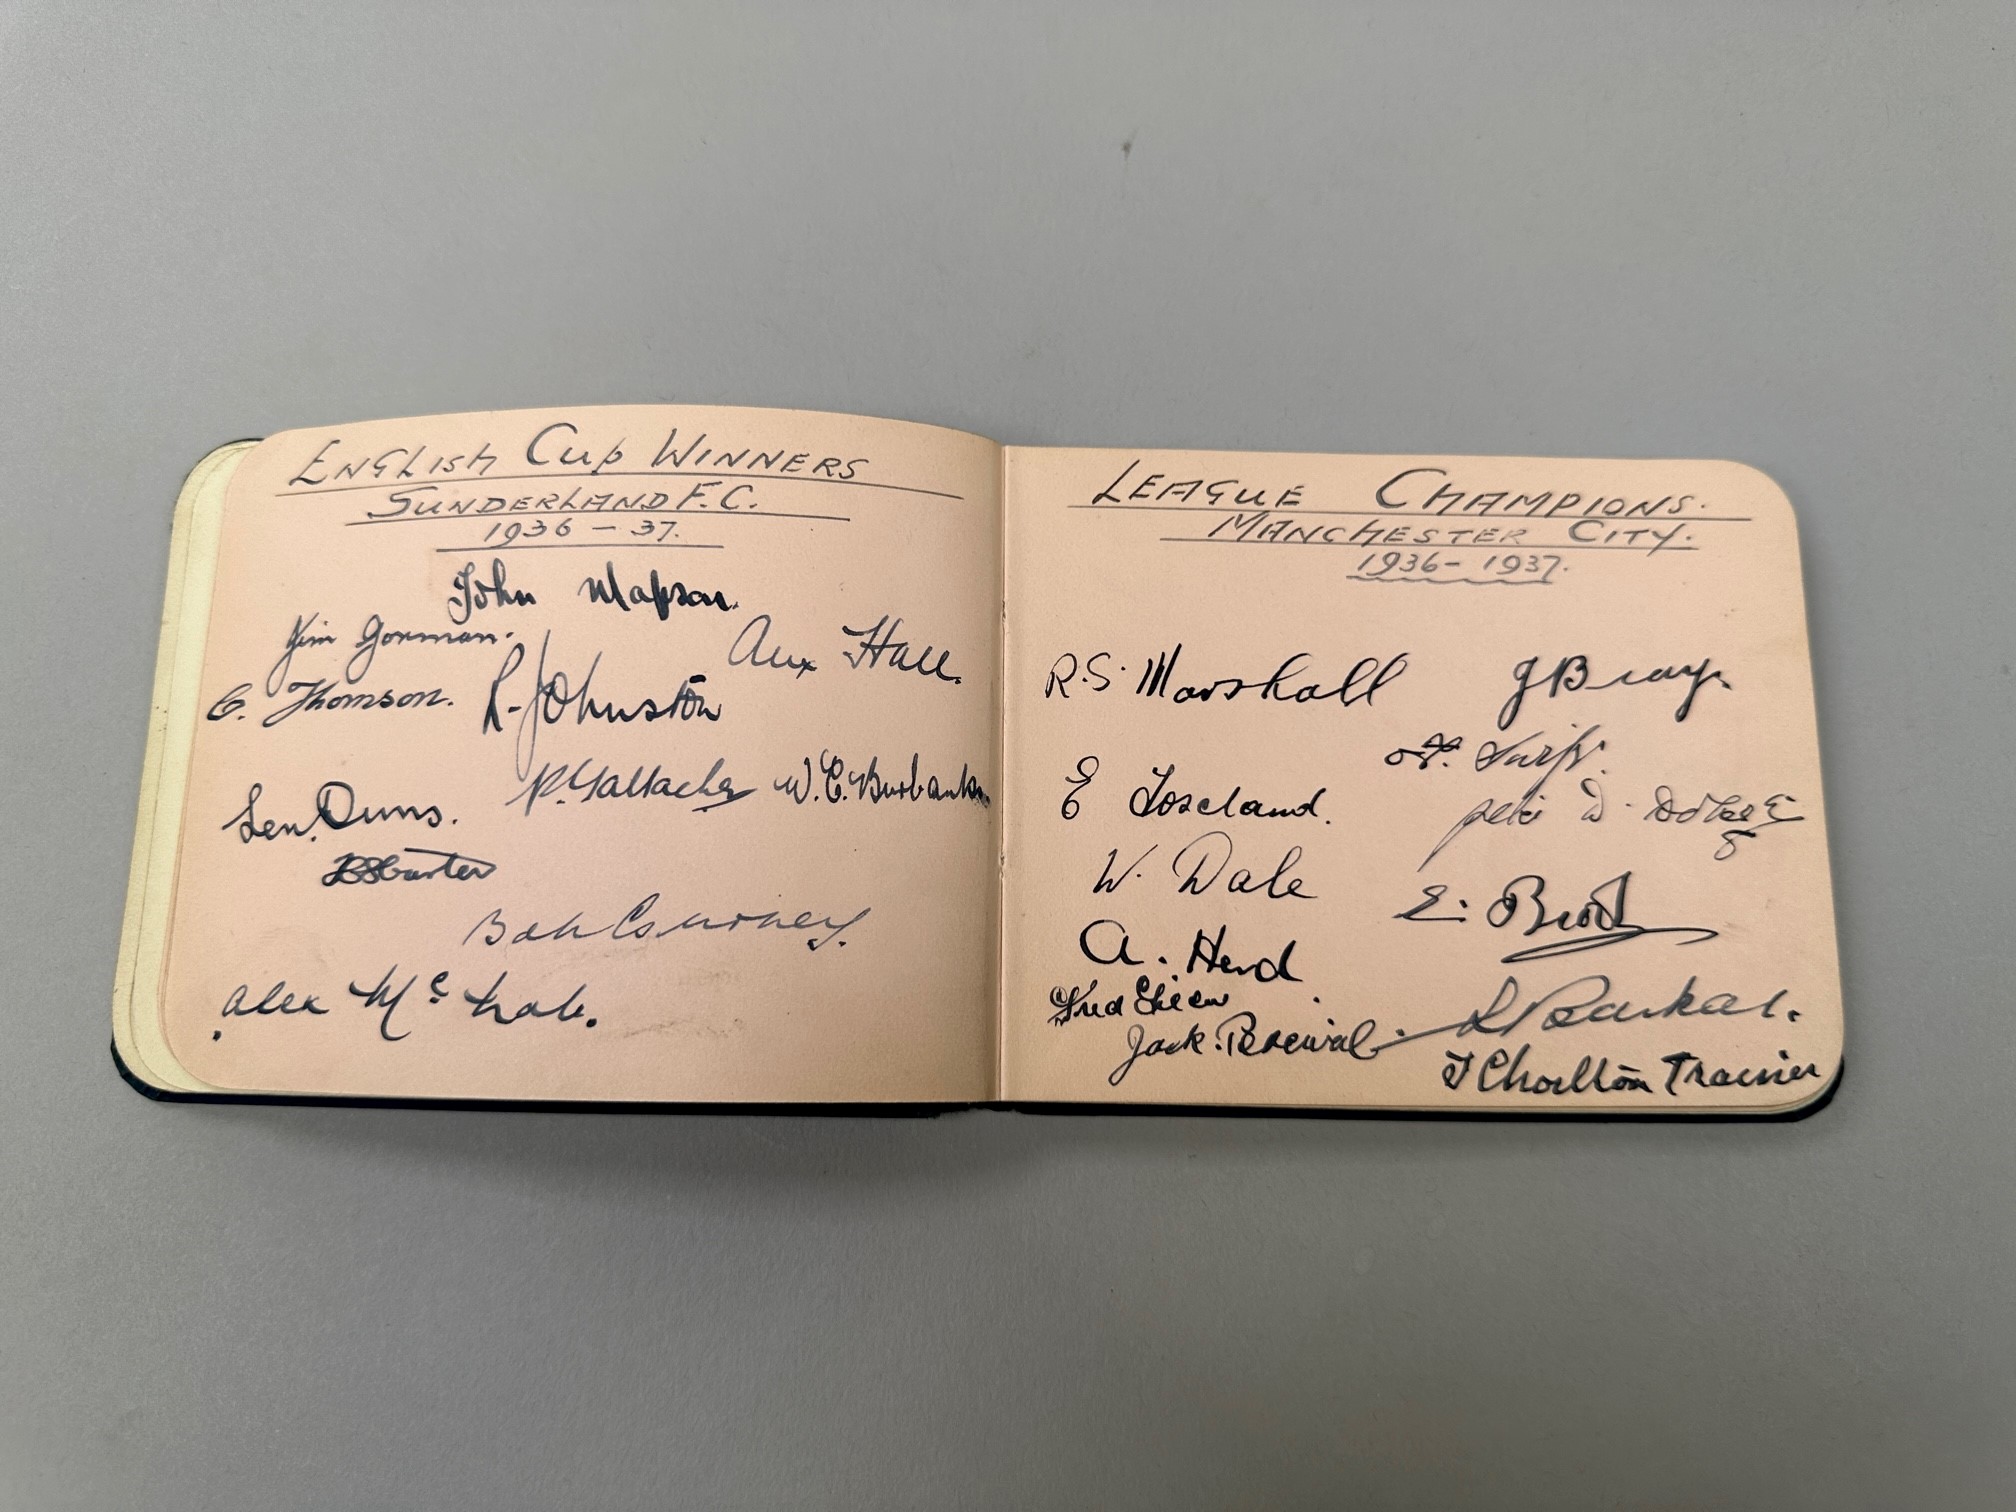 ENGLISH CUP WINNERS
SUNDERLAND F.C.
1936 - 37.
John Mapson.
Jim Gorman.
Alex Hall.
C. Thomson.
R. Johnston
P. Gallacher
W. C. Burbanks
Len. Duns.
Carter
Bob Gurney.
Alex Mc Nab.
LEAGUE CHAMPIONS.
MANCHESTER CITY.
1936 - 1937.
R. S. Marshall
J Bray.
F. Swift.
E Toseland.
Peter D. Doherty
W. Dale
E. Brook
A. Herd
Jack. Percival
T Chorlton Trainer